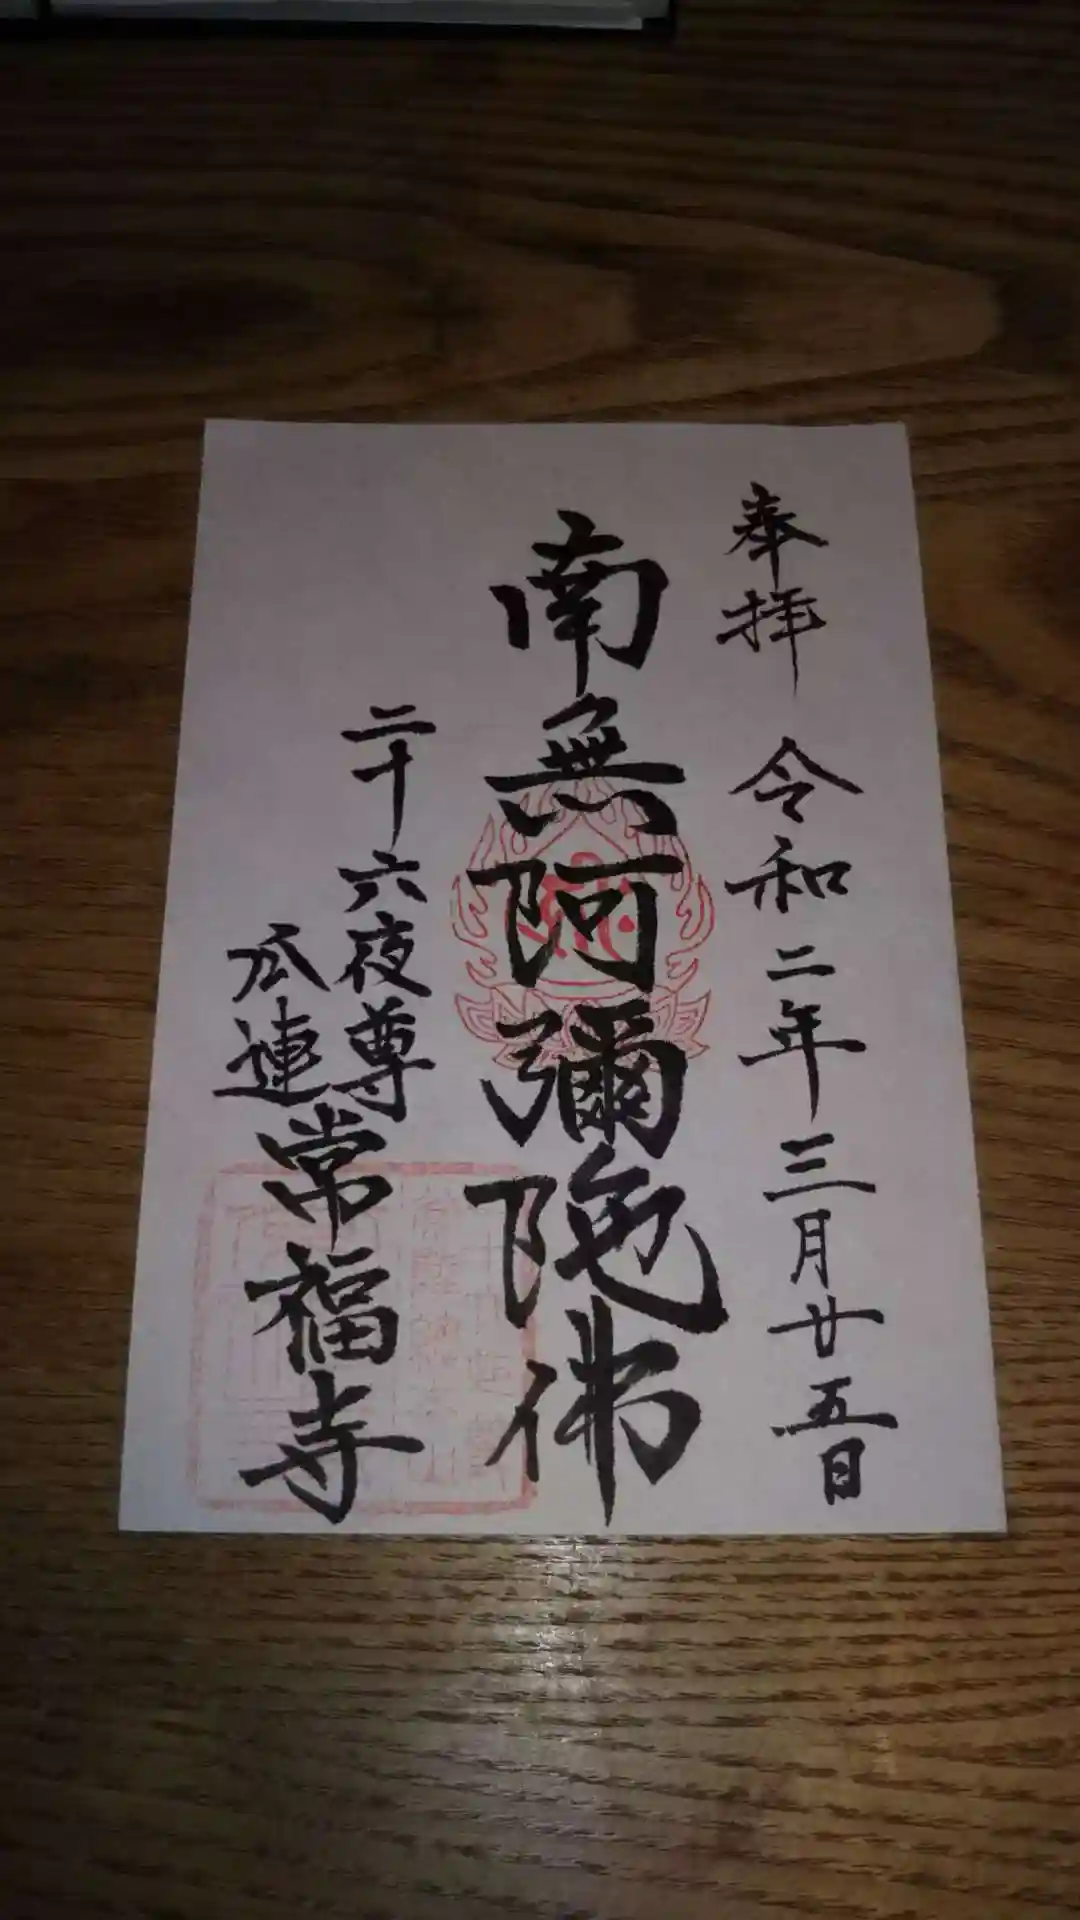 奉拝 令和二年三月廿五日
南無阿彌陀佛
二十六夜尊
瓜連常福寺